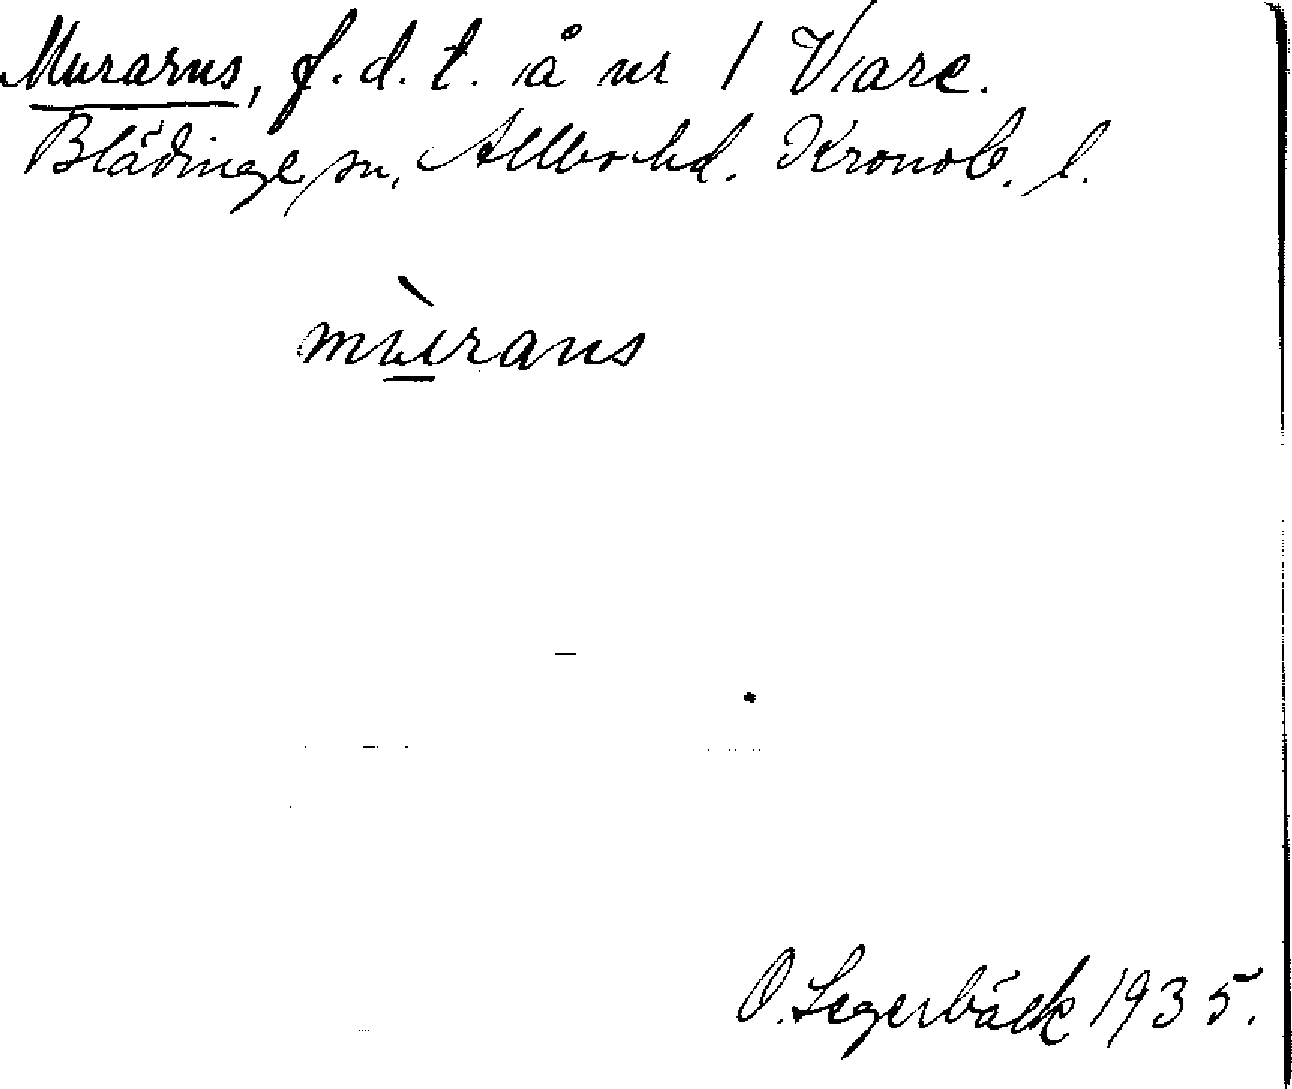 Murarns, f.d.t. å nr 1 Vare.
Blädinge sn, Allbo hd. Kronob. l.
mùrans
O. Legerbäck 1935.